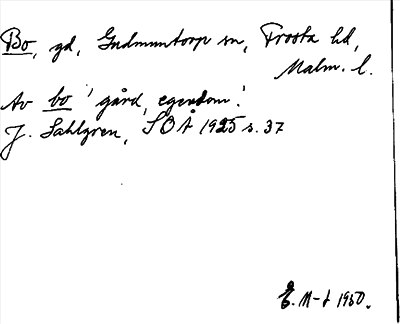 Bo, gd, Gudmuntorp sn, Frosta hd,
Malm. l.
Av bo 'gård, egendom'.
J. Sahlgren, SOÅ 1925 s. 37
1950.